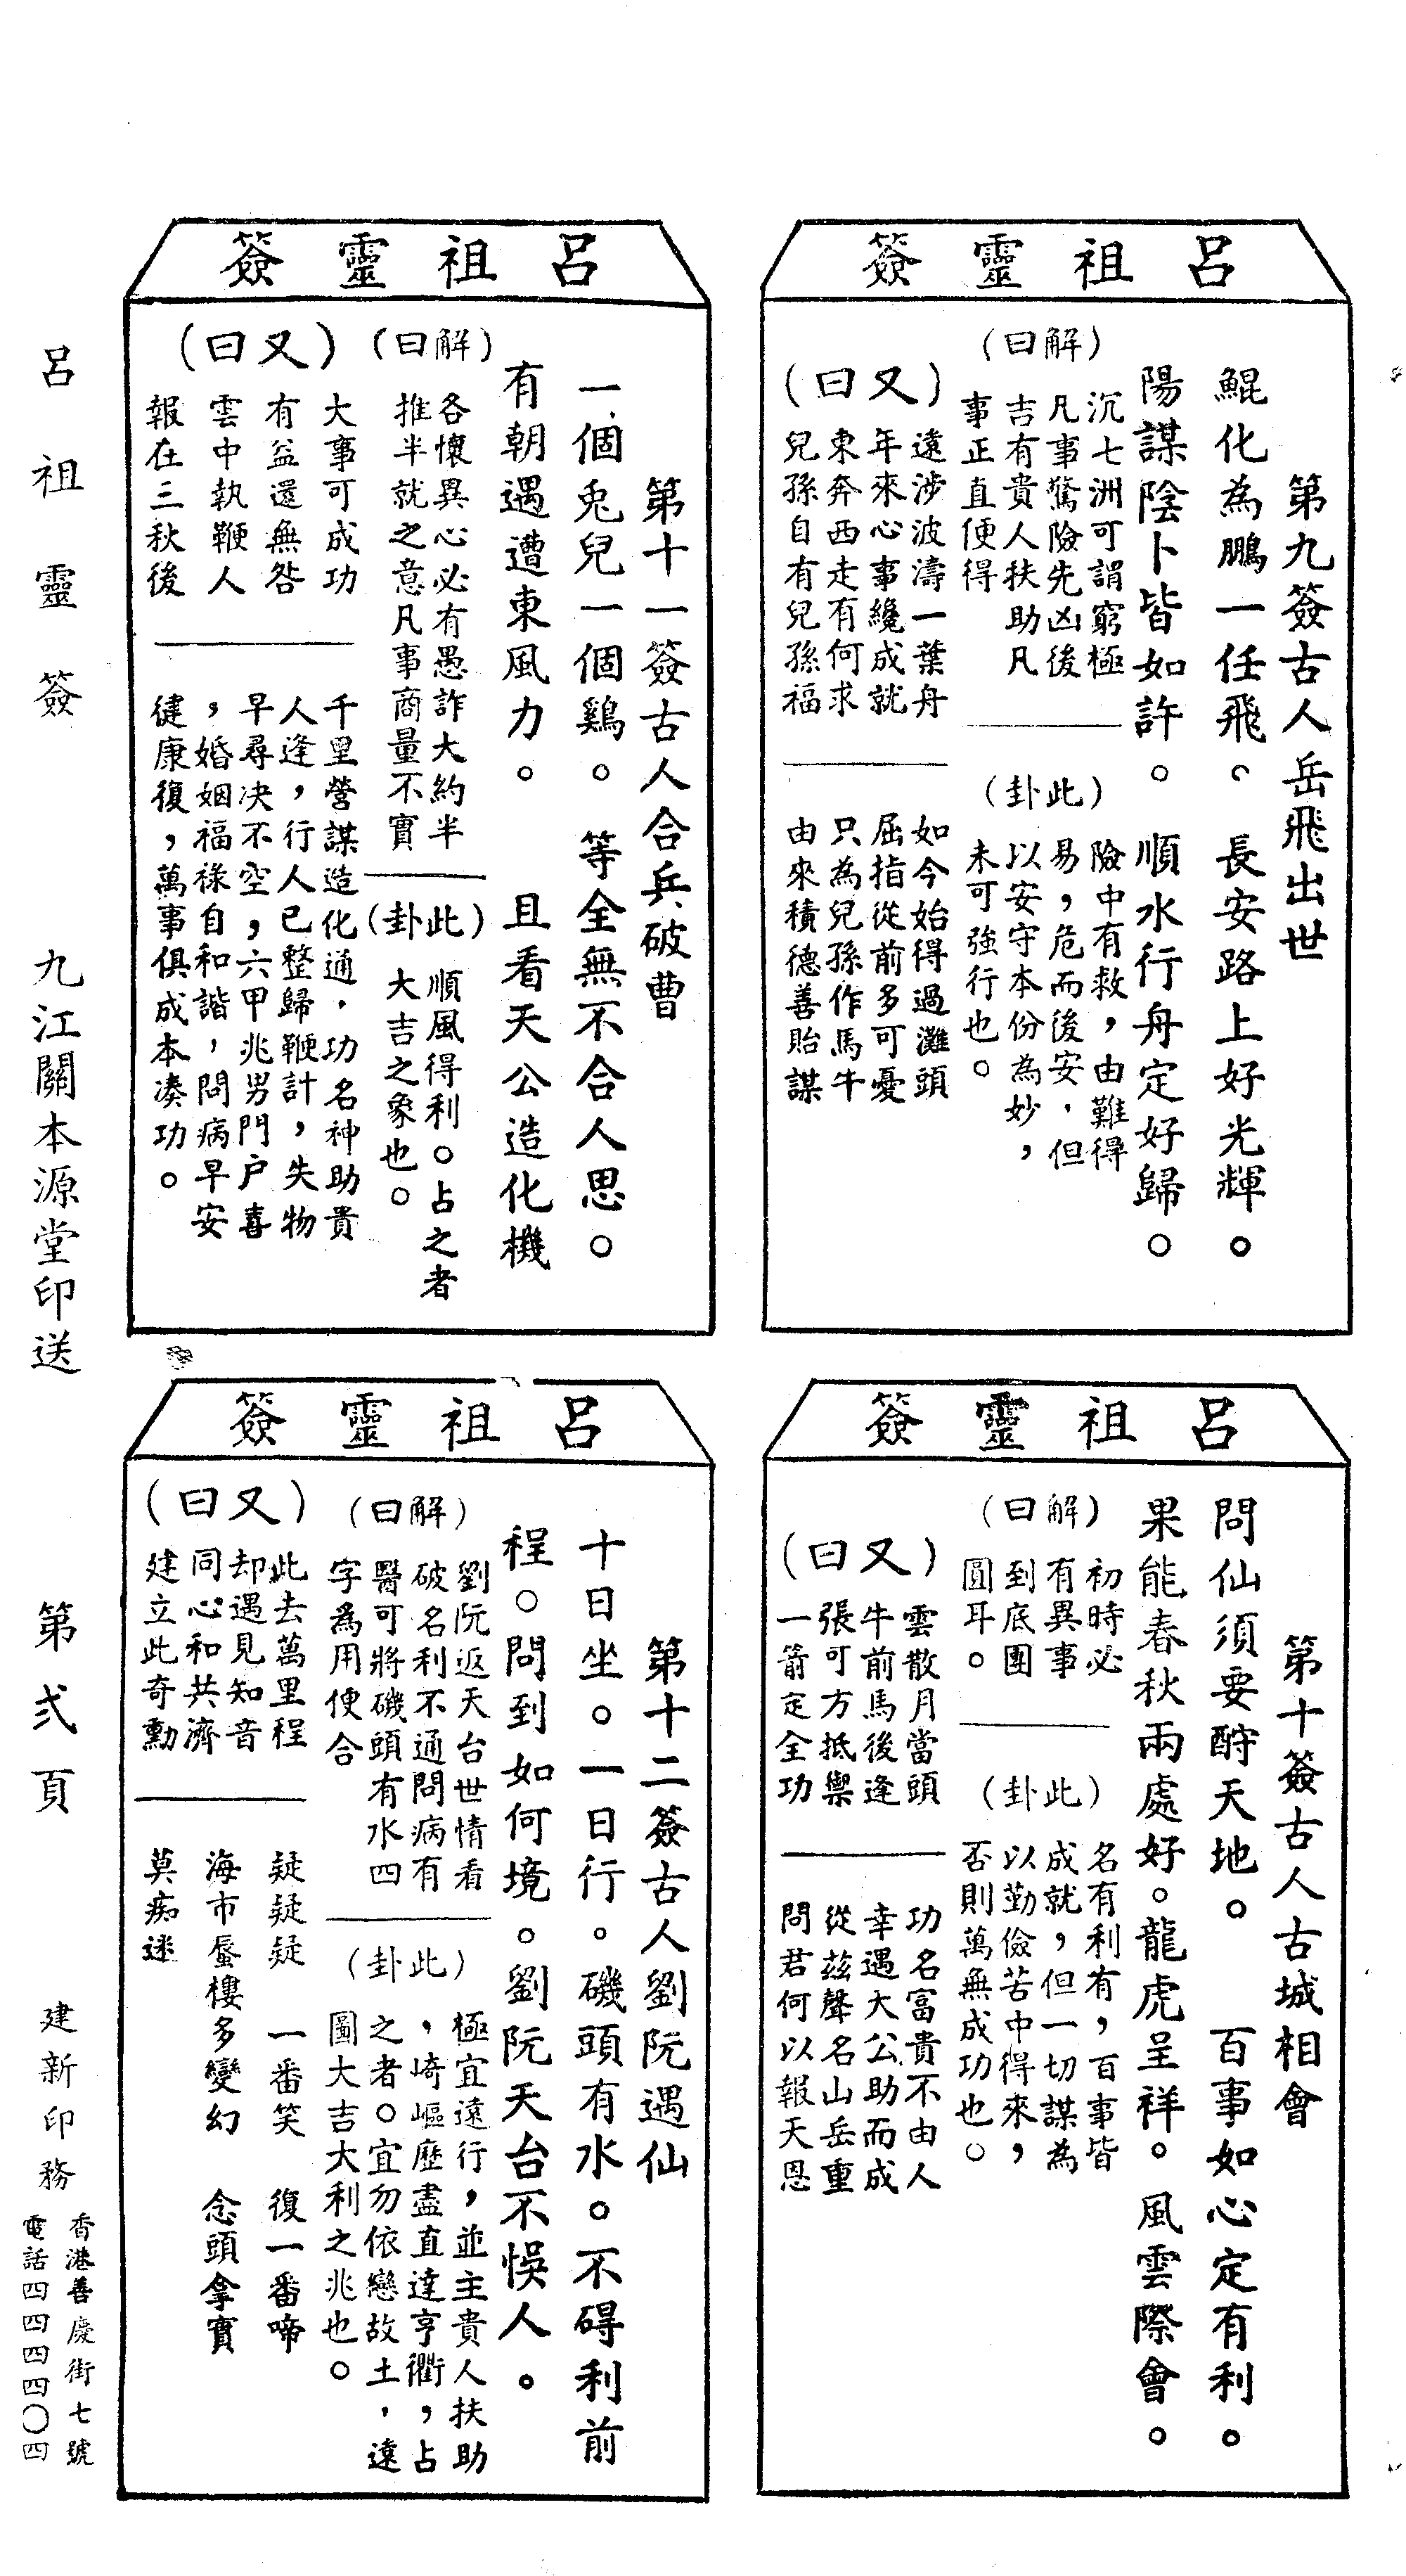 呂祖靈簽
第九簽古人岳飛出世
鯤化為鵬一任飛。長安路上好光輝。
陽謀陰卜皆如許。順水行舟定好歸。
(解曰)
沉七洲可謂窮極
凡事驚險先凶後
吉有貴人扶助凡
事正直便得
(此卦)
險中有救，由難得
易，危而後安，但
以安守本份為妙，
未可強行也。
(又曰)
遠涉波濤一葉舟
年來心事纔成就
東奔西走有何求
兒孫自有兒孫福
如今始得過灘頭
屈指從前多可憂
只為兒孫作馬牛
由來積德善貽謀
呂祖靈簽
第十簽古人古城相會
問仙須要酧天地。百事如心定有利。
果能春秋兩處好。龍虎呈祥。風雲際會。
(解曰)
初時必
有異事
到底團
圓耳。
(此卦)
名有利有，百事皆
成就，但一切謀為
以勤儉苦中得來，
否則萬無成功也。
(又曰)
雲散月當頭
牛前馬後逢
張可方抵禦
一箭定全功
功名富貴不由人
幸遇大公助而成
從茲聲名山岳重
問君何以報天恩
呂祖靈簽
第十一簽古人合兵破曹
一個兎兒一個鷄。等全無不合人思。
有朝遇遭東風力。且看天公造化機
(解曰)
各懷異心必有愚詐大約半
推半就之意凡事商量不實
(此卦)
順風得利。占之者
大吉之象也。
(又曰)
大事可成功
有益還無咎
雲中執鞭人
報在三秋後
千里營謀造化通，功名神助貴
人逢，行人已整歸鞭計，失物
早尋決不空，六甲兆男門户喜
，婚姻福祿自和諧，問病早安
健康復，萬事俱成本湊功。
呂祖靈簽
第十二簽古人劉阮遇仙
十日坐。一日行。磯頭有水。不碍利前
程。問到如何境。劉阮天台不悞人。
(解曰)
劉阮返天台世情看
破名利不通問病有
醫可將磯頭有水四
字為用便合
(此卦)
極宜遠行，並主貴人扶助
，崎嶇歷盡直達亨衢，占
之者。宜勿依戀故土，遠
圖大吉大利之兆也。
(又曰)
此去萬里程
却遇見知音
同心和共濟
建立此奇勳
疑疑疑 一番笑 復一番啼
海市蜃樓多變幻 念頭拿實
莫痴迷
呂祖靈簽 九江關本源堂印送 第弍頁
建新印務
香港善慶街七號
電話四四四四〇四